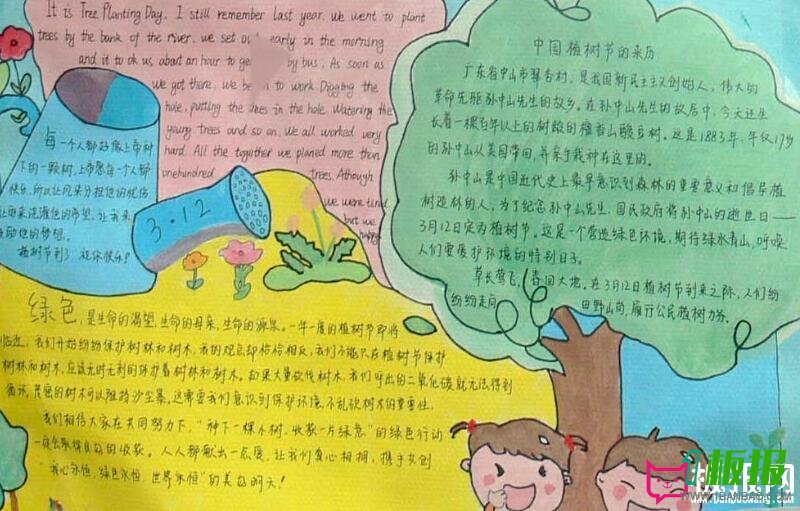 It is Tree Planting Day. I still remember last year, we went to plant
trees by the bank of the river. we set out early in the morning
and it to ok us about an hour to ge by bus, As soon as
we got there, we be to work Digging the
hole, putting the trees in the hole. Watering the
young trees and so on. We all worked very
hard. All the together we planed more than
onehundred trees. Athough
we were tired
but we
happy
每一个人都好像上帝树
下的一颗树,上帝愿每一个人都
快乐,所以让风来分担他的忧伤
让雨来浇灌他的希望,让我来
动他的梦想。
植树节到了,祝你快乐!
3·12
中国植树节的来历
广东省中山市翠亨村,是我国新民主主义创始人,伟大的
革命先驱孙中山先生的故乡。在孙中山先生的故居中,今天还生
长着一棵百年以上的树龄的檀香山酸豆树。这是1883年,年仅17岁
的孙中山从美国带回,并亲手栽种在这里的。
孙中山是中国近代史上最早意识到森林的重要意义和倡导植
树造林的人,为了纪念孙中山先生,国民政府将孙中山的逝世日——
3月12日定为植树节。这是一个营造绿色环境,期待绿水青山,呼唤
人们要爱护环境的特别日子。
草长莺飞,春回大地。在3月12日植树节到来之际,人们纷
纷纷走向田野山岗,履行公民植树义务。
绿色,是生命的渴望,生命的母亲,生命的源泉。一年一度的植树节即将
临近,我们开始纷纷保护树林和树木,我的观点却恰恰相反,我们不能只在植树节保护
树林和树木,应该无时无刻的保护着树林和树木。如果大量砍伐树木,我们呼出的二氧化碳就无法得到
循环,茂密的树木可以阻挡沙尘暴。这需要我们意识到保护环境,不乱砍树木的重要性。
我们相信大家在共同努力下,"种下一棵小树,收获一片绿意"的绿色行动
一定会取得良好的收获。人人都献出一点爱,让我们真心相拥,携手共创
"我心永恒,绿色永恒,世界永恒"的美好明天!
板报